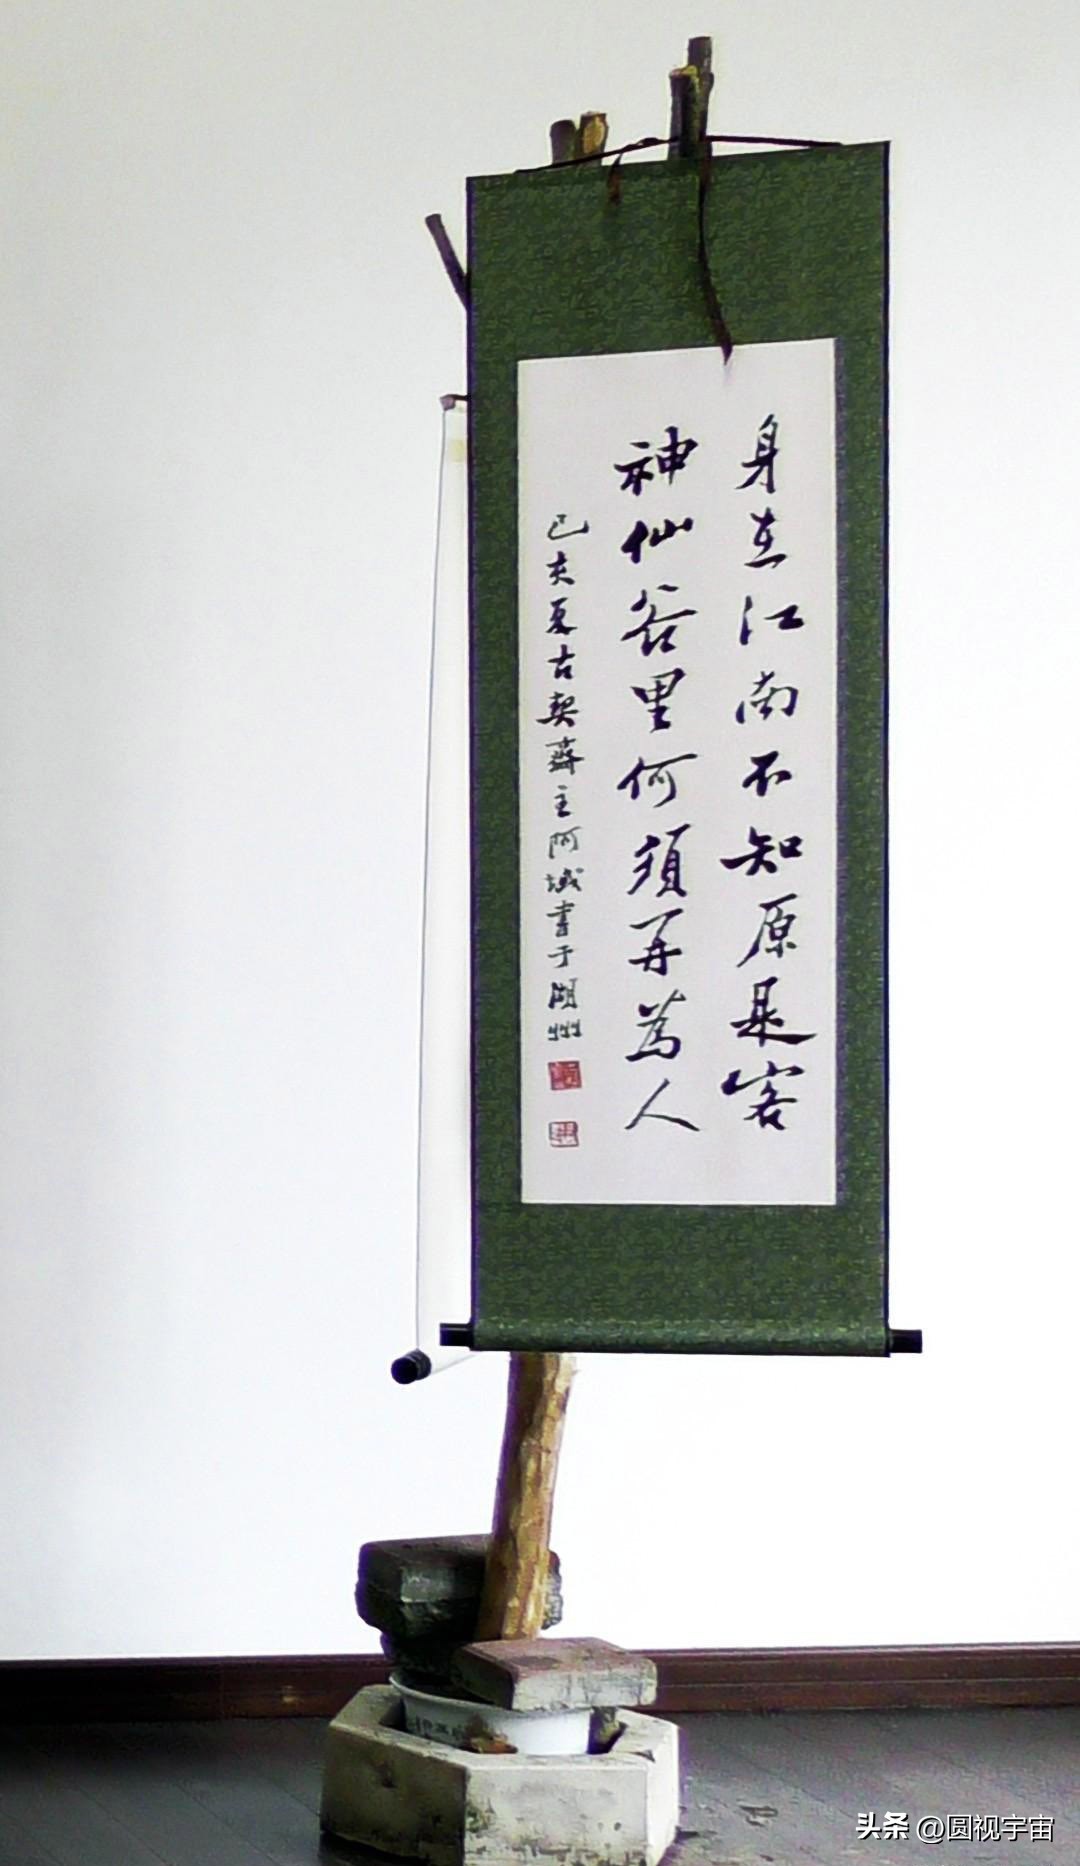 身在江南不知原是客
神仙谷里何须再為人
己亥夏古契齋主阿城書于湖州
头条 @圆视宇宙